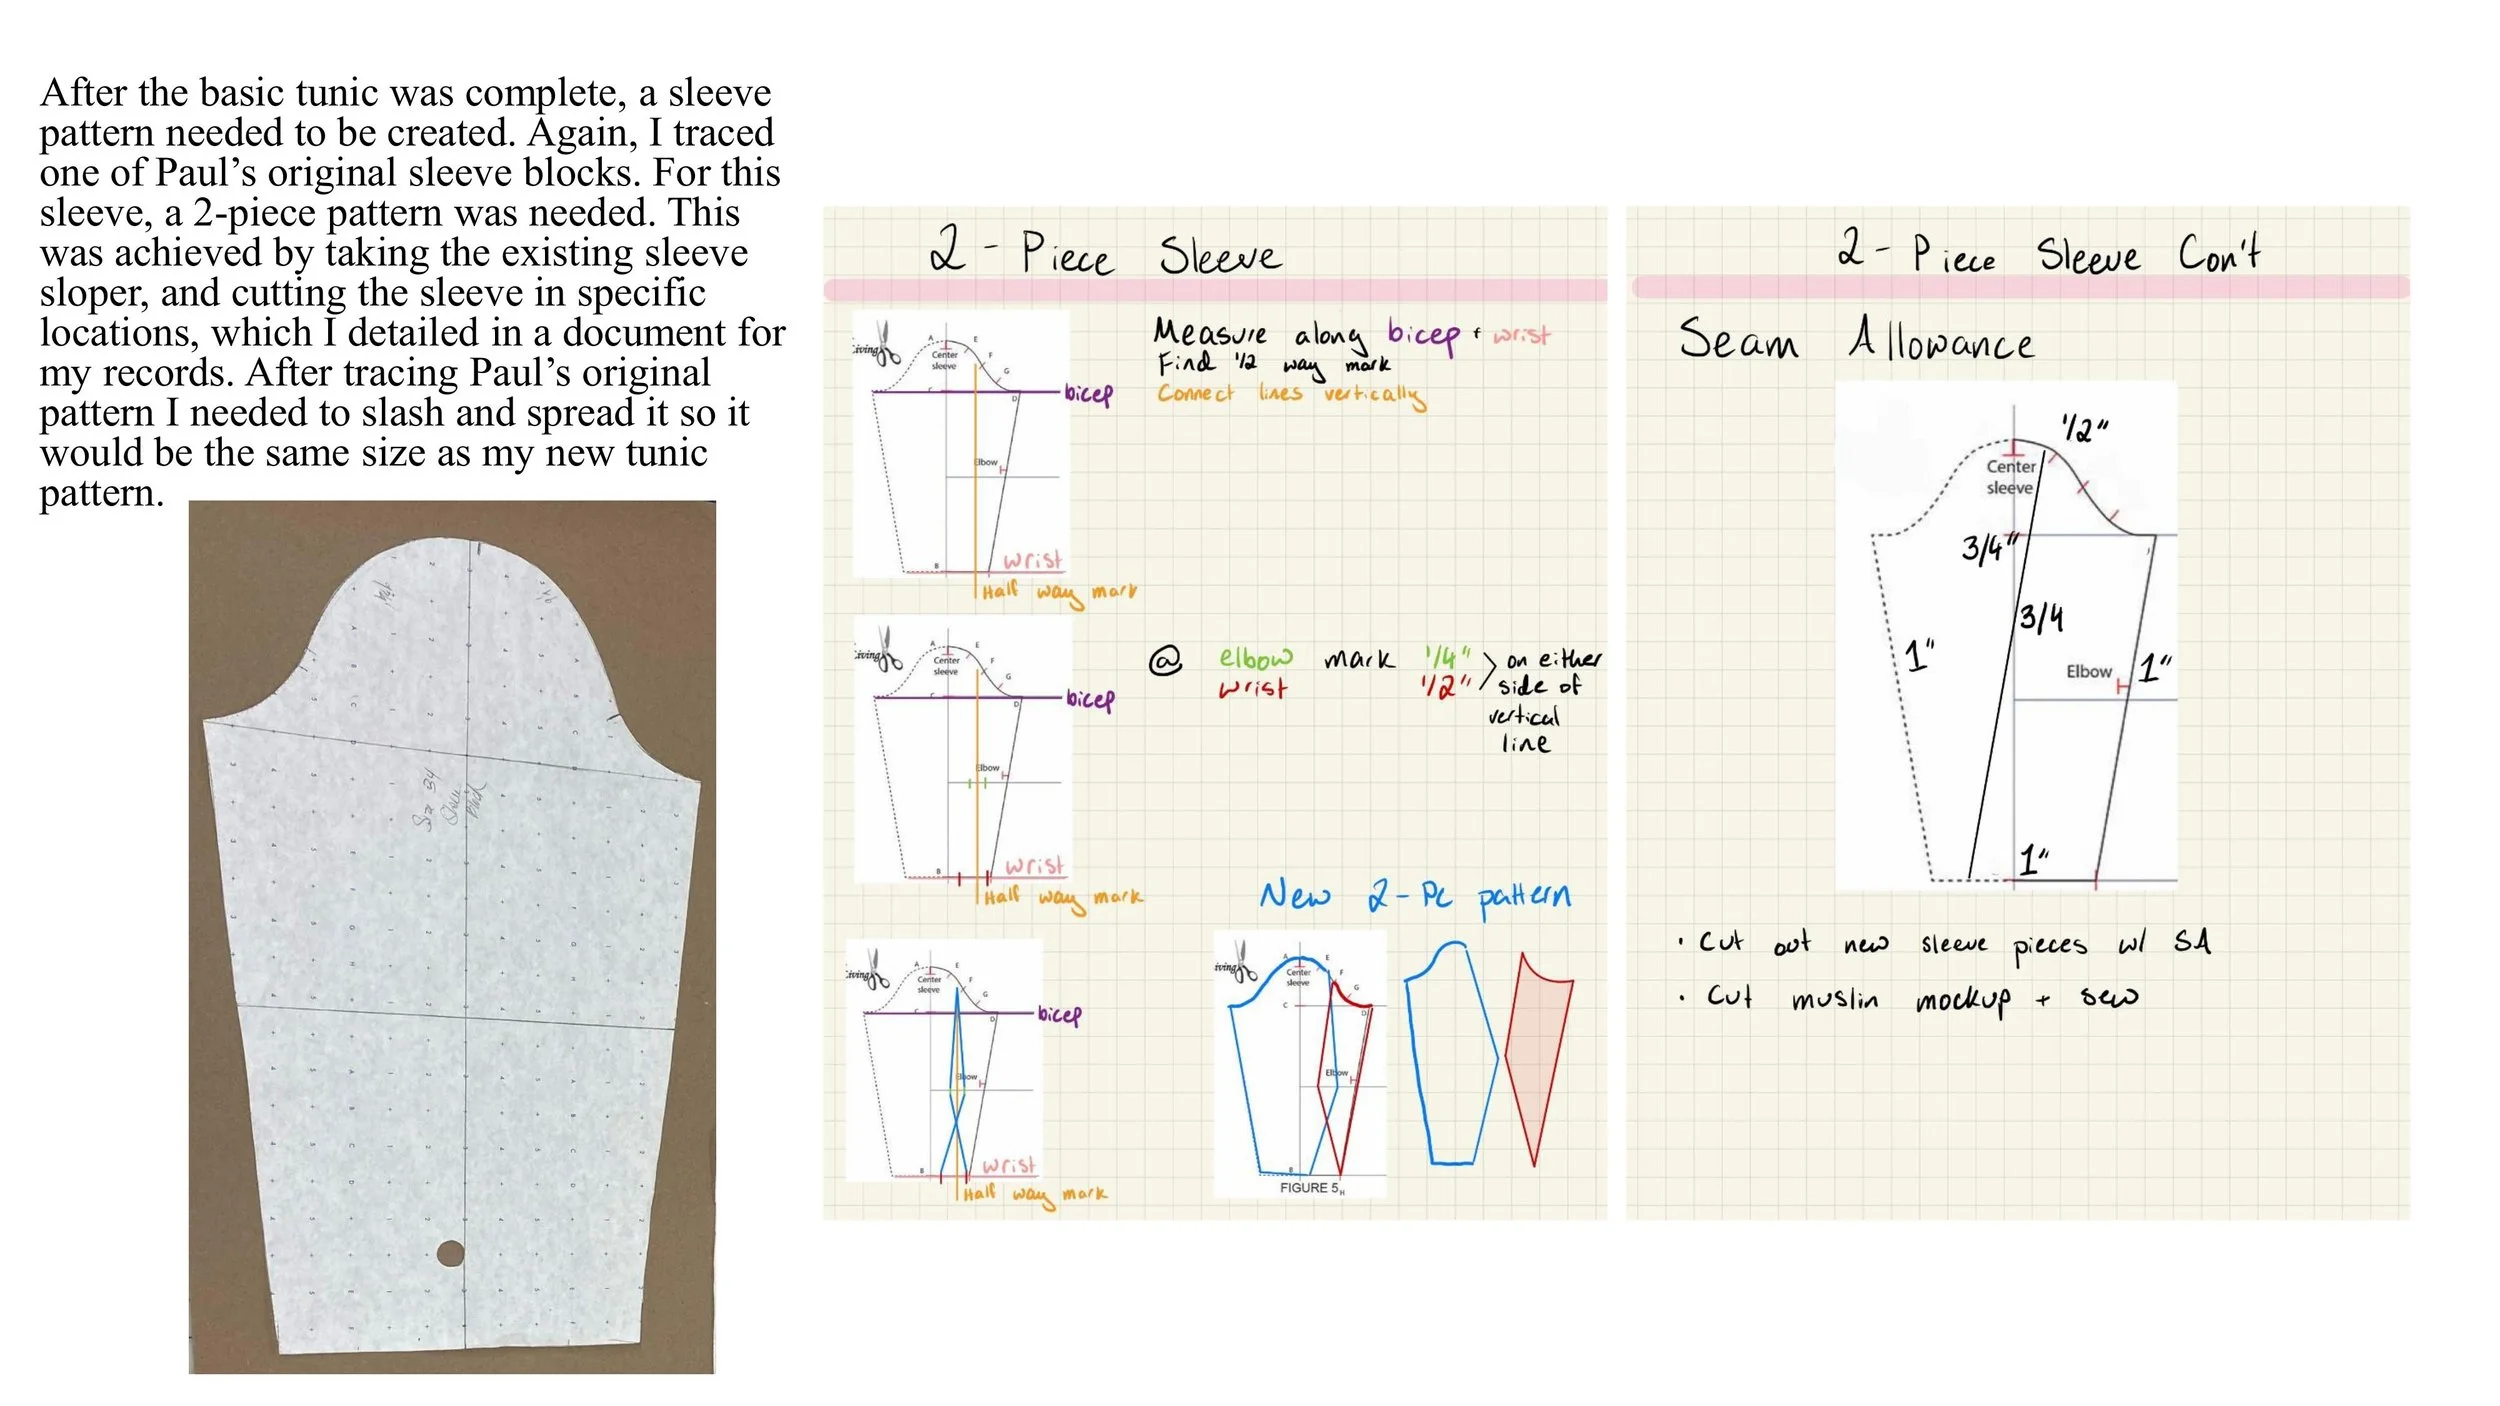 After the basic tunic was complete, a sleeve
pattern needed to be created. Again, I traced
one of Paul’s original sleeve blocks. For this
sleeve, a 2-piece pattern was needed. This
was achieved by taking the existing sleeve
sloper, and cutting the sleeve in specific
locations, which I detailed in a document for
my records. After tracing Paul’s original
pattern I needed to slash and spread it so it
would be the same size as my new tunic
pattern.
Size 34
Sleeve
Block
2 - Piece Sleeve
Measure along bicep + wrist
Find 1/2 way mark
Connect lines vertically
iving
A
E
Center
sleeve
F
G
C
D
bicep
Elbow
B
wrist
Half way mark
@ elbow mark 1/4" > on either
wrist 1/2" side of
vertical
line
iving
A
E
Center
sleeve
F
G
C
D
bicep
Elbow
B
wrist
Half way mark
New 2-Pc pattern
iving
A
E
Center
sleeve
F
G
C
D
bicep
Elbow
B
wrist
Half way mark
iving
A
E
Center
sleeve
F
G
C
D
Elbow
B
FIGURE 5H
2 - Piece Sleeve Con't
Seam Allowance
1/2"
Center
sleeve
3/4"
3/4
1"
Elbow
1"
1"
• Cut out new sleeve pieces w/ SA
• Cut muslin mockup + sew